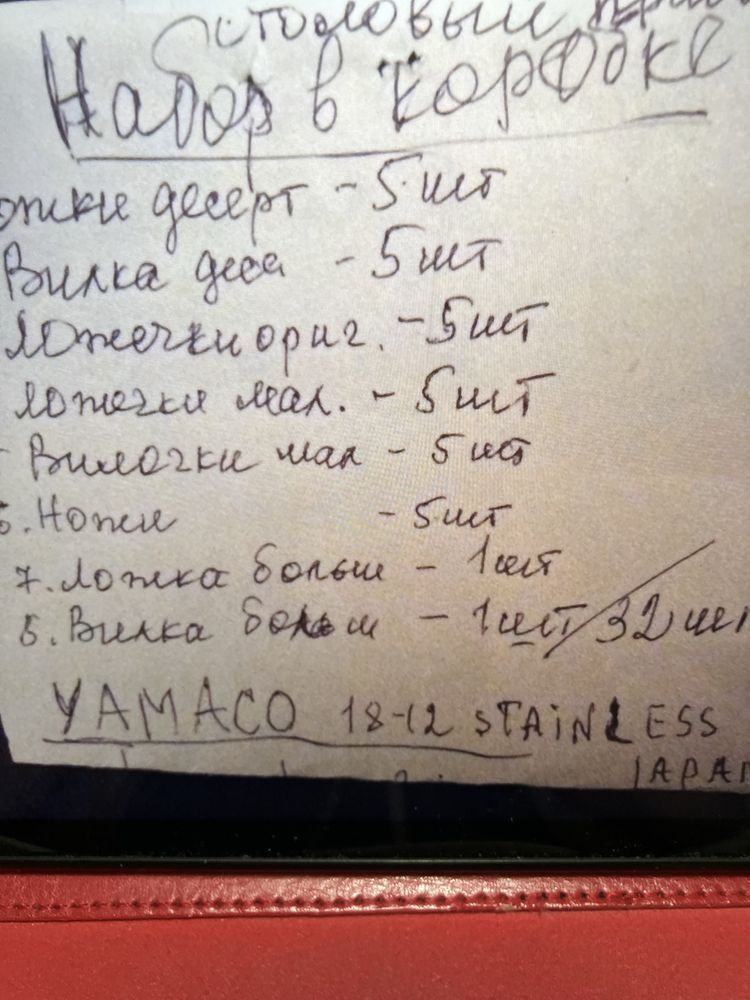 столовый
Набор в коробке
ожки десерт - 5 шт
Вилка десе - 5 шт
Ложечки ориг. - 5 шт
ложечки мал. - 5 шт
Вилочки мал - 5 шт
6. Ножи - 5 шт
7. Ложка больш - 1 шт
8. Вилка больш - 1 шт / 32 шт
YAMACO 18-12 STAINLESS
JAPAN